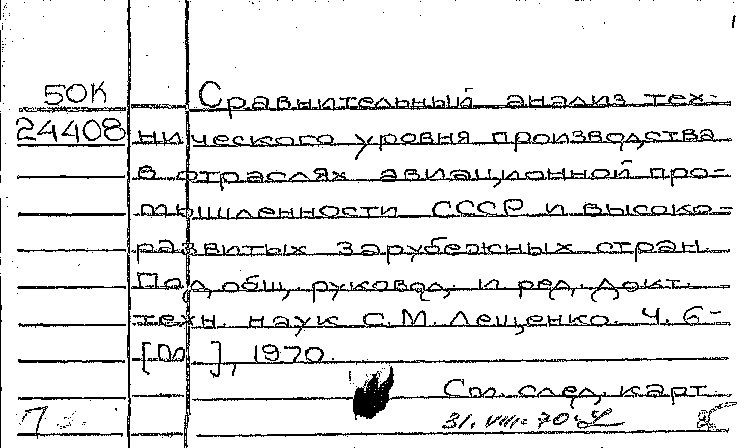 50К
24408
Сравнительный анализ тех-
нического уровня производства
в отраслях авиационной про-
мышленности СССР и высоко-
развитых зарубежных стран.
Под общ. руковод. и ред. докт.
техн. наук С.М. Лещенко. Ч. 6-
[М.], 1970.
См. след. карт.
31.VIII.70